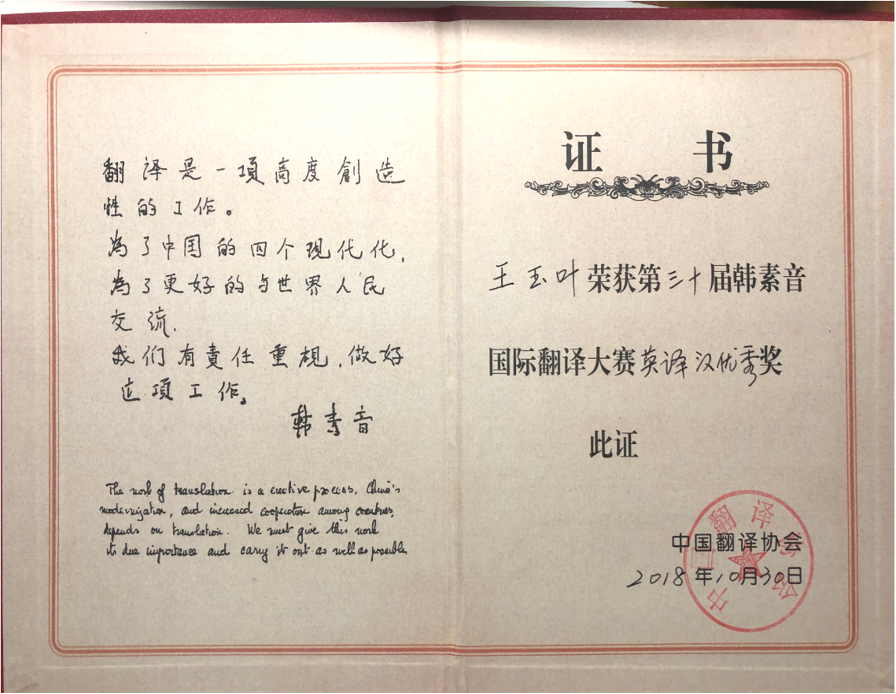 翻译是一項高度創造
性的工作。
為了中国的四个现代化,
為了更好的与世界人民
交流.
我们有責任重視,做好
这項工作。
韩素音
The work of translation is a creative process. China's
modernization, and increased cooperation among countries,
depends on translation. We must give this work
its due importance and carry it out as well as possible.
证 书
王玉叶荣获第三十届韩素音
国际翻译大赛英译汉优秀奖
此证
中国翻译协会
2018年10月30日
中国翻译协会